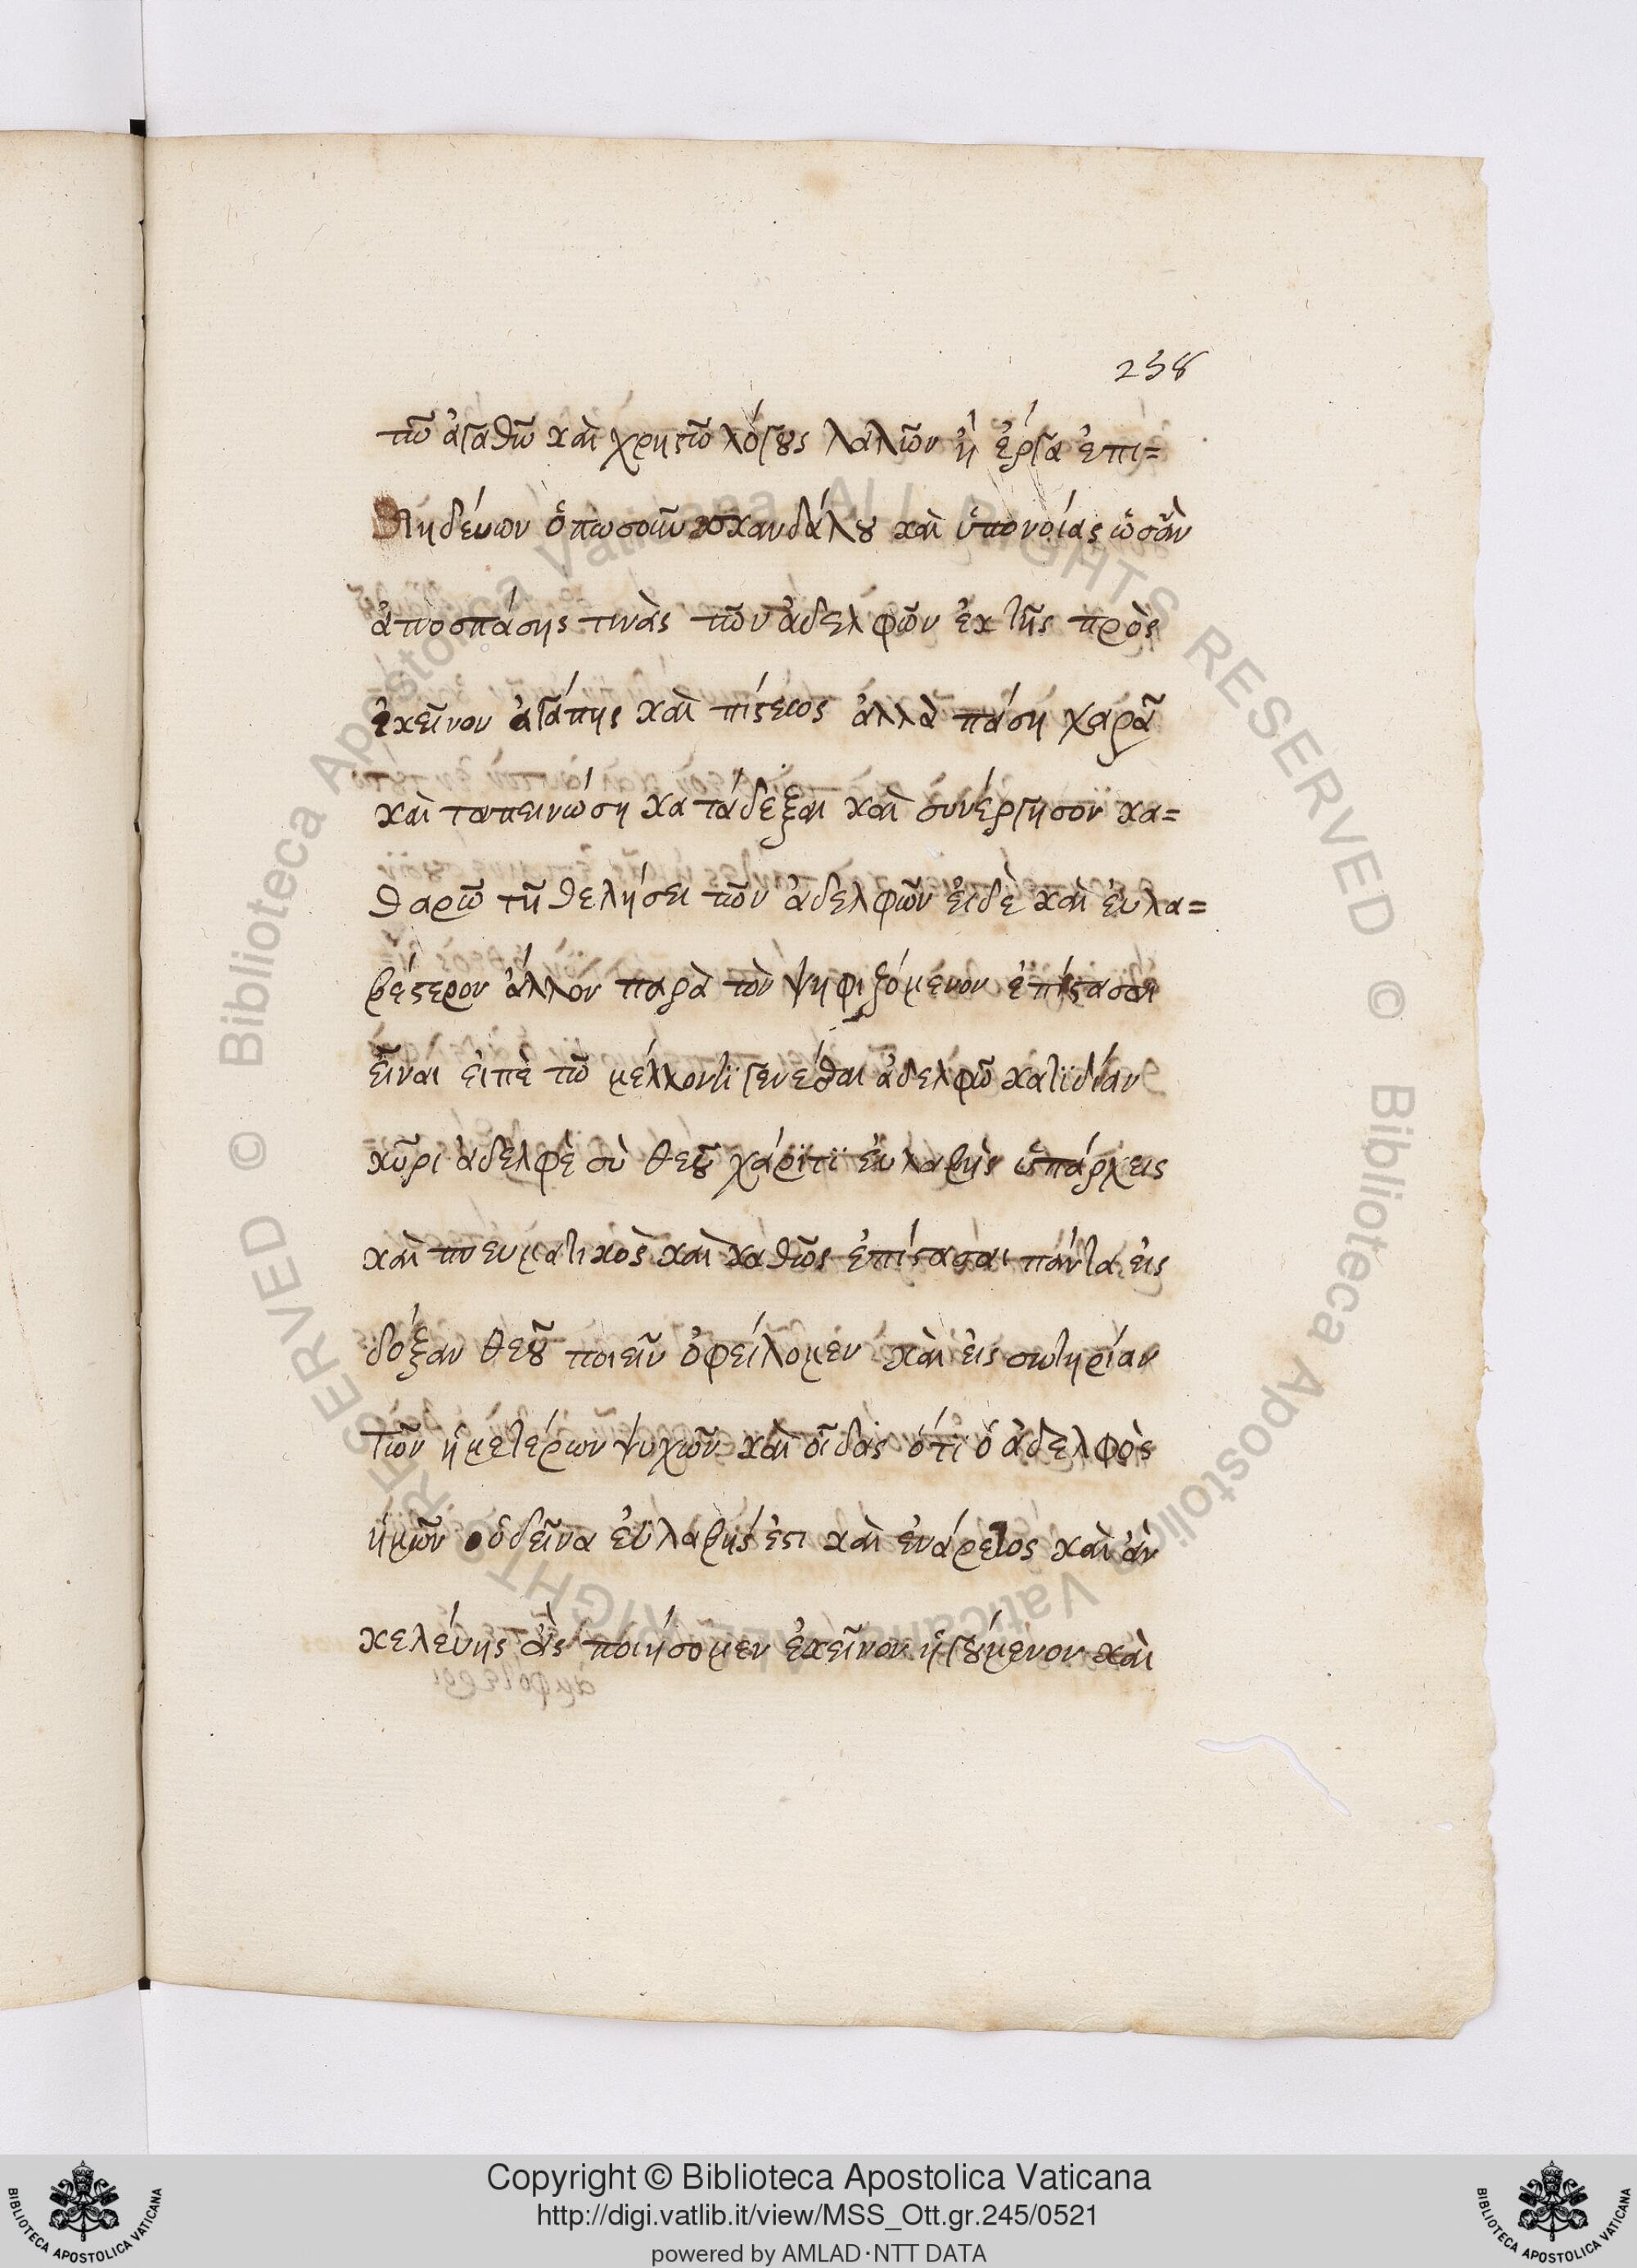 238
τῶ ἀγαθῶ καὶ χρηστῶ λόγους λαλῶν ἢ ἔργα ἐπι=
τηδέυων ὁπωσοῦν σκανδάλου καὶ ὑπονοίας ὡσὰν
ἀποσπάσης τινὰς τῶν ἀδελφῶν ἐκ τῆς πρὸς
ἐκεῖνον ἀγάπης καὶ πίστεως ἀλλὰ πάση χαρᾶ
καὶ ταπεινώση κατάδεξαι καὶ συνέργησον κα=
θαρῶ τῆ θελήσει τῶν ἀδελφῶν ἐιδὲ καὶ ἐυλα=
βέστερον ἄλλον παρὰ τὸν ψηφιζόμενον ἐπίστασαι
εἶναι ἐιπὲ τῶ μέλλοντι γενέσθαι ἀδελφῶ κατϊδίαν
κῦρι ἀδελφὲ σὺ θεοῦ χάριτϊ ἐυλαβὴς ὑπάρχεις
καὶ πνευματικὸς καὶ καθῶς ἐπίστασαι πάντα ἐις
δόξαν θεοῦ ποιεῖν ὀφείλομεν καὶ ἐις σωτηρίαν
τῶν ἡμετέρων ψυχῶν καὶ οἶδας ὅτι ὁ ἀδελφὸς
ἡμῶν ὁδεῖνα ἐυλαβής ἐστι καὶ ἐνάρετος καὶ ἀν
κελέυης ἂς ποιήσομεν ἐκεῖνον ἡγούμενον καὶ
Copyright © Biblioteca Apostolica Vaticana
http://digi.vatlib.it/view/MSS_Ott.gr.245/0521
powered by AMLAD·NTT DATA
BIBLIOTECA APOSTOLICA VATICANA
BIBLIOTECA APOSTOLICA VATICANA
© Biblioteca Apostolica Vaticana ALL RIGHTS RESERVED
© Biblioteca Apostolica Vaticana ALL RIGHTS RESERVED